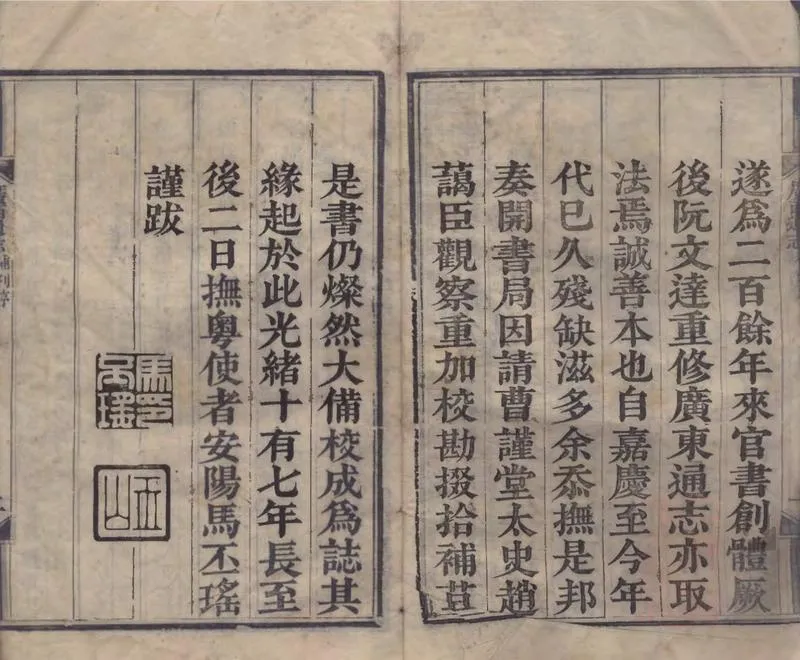 遂爲二百餘年來官書創體厥
後阮文達重修廣東通志亦取
法焉誠善本也自嘉慶至今年
代已久殘缺滋多余忝撫是邦
奏開書局因請曹謹堂太史趙
藹臣觀察重加校勘掇拾補苴
是書仍燦然大備校成爲誌其
緣起於此光緒十有七年長至
後二日撫粵使者安陽馬丕瑤
謹跋
馬丕瑤印